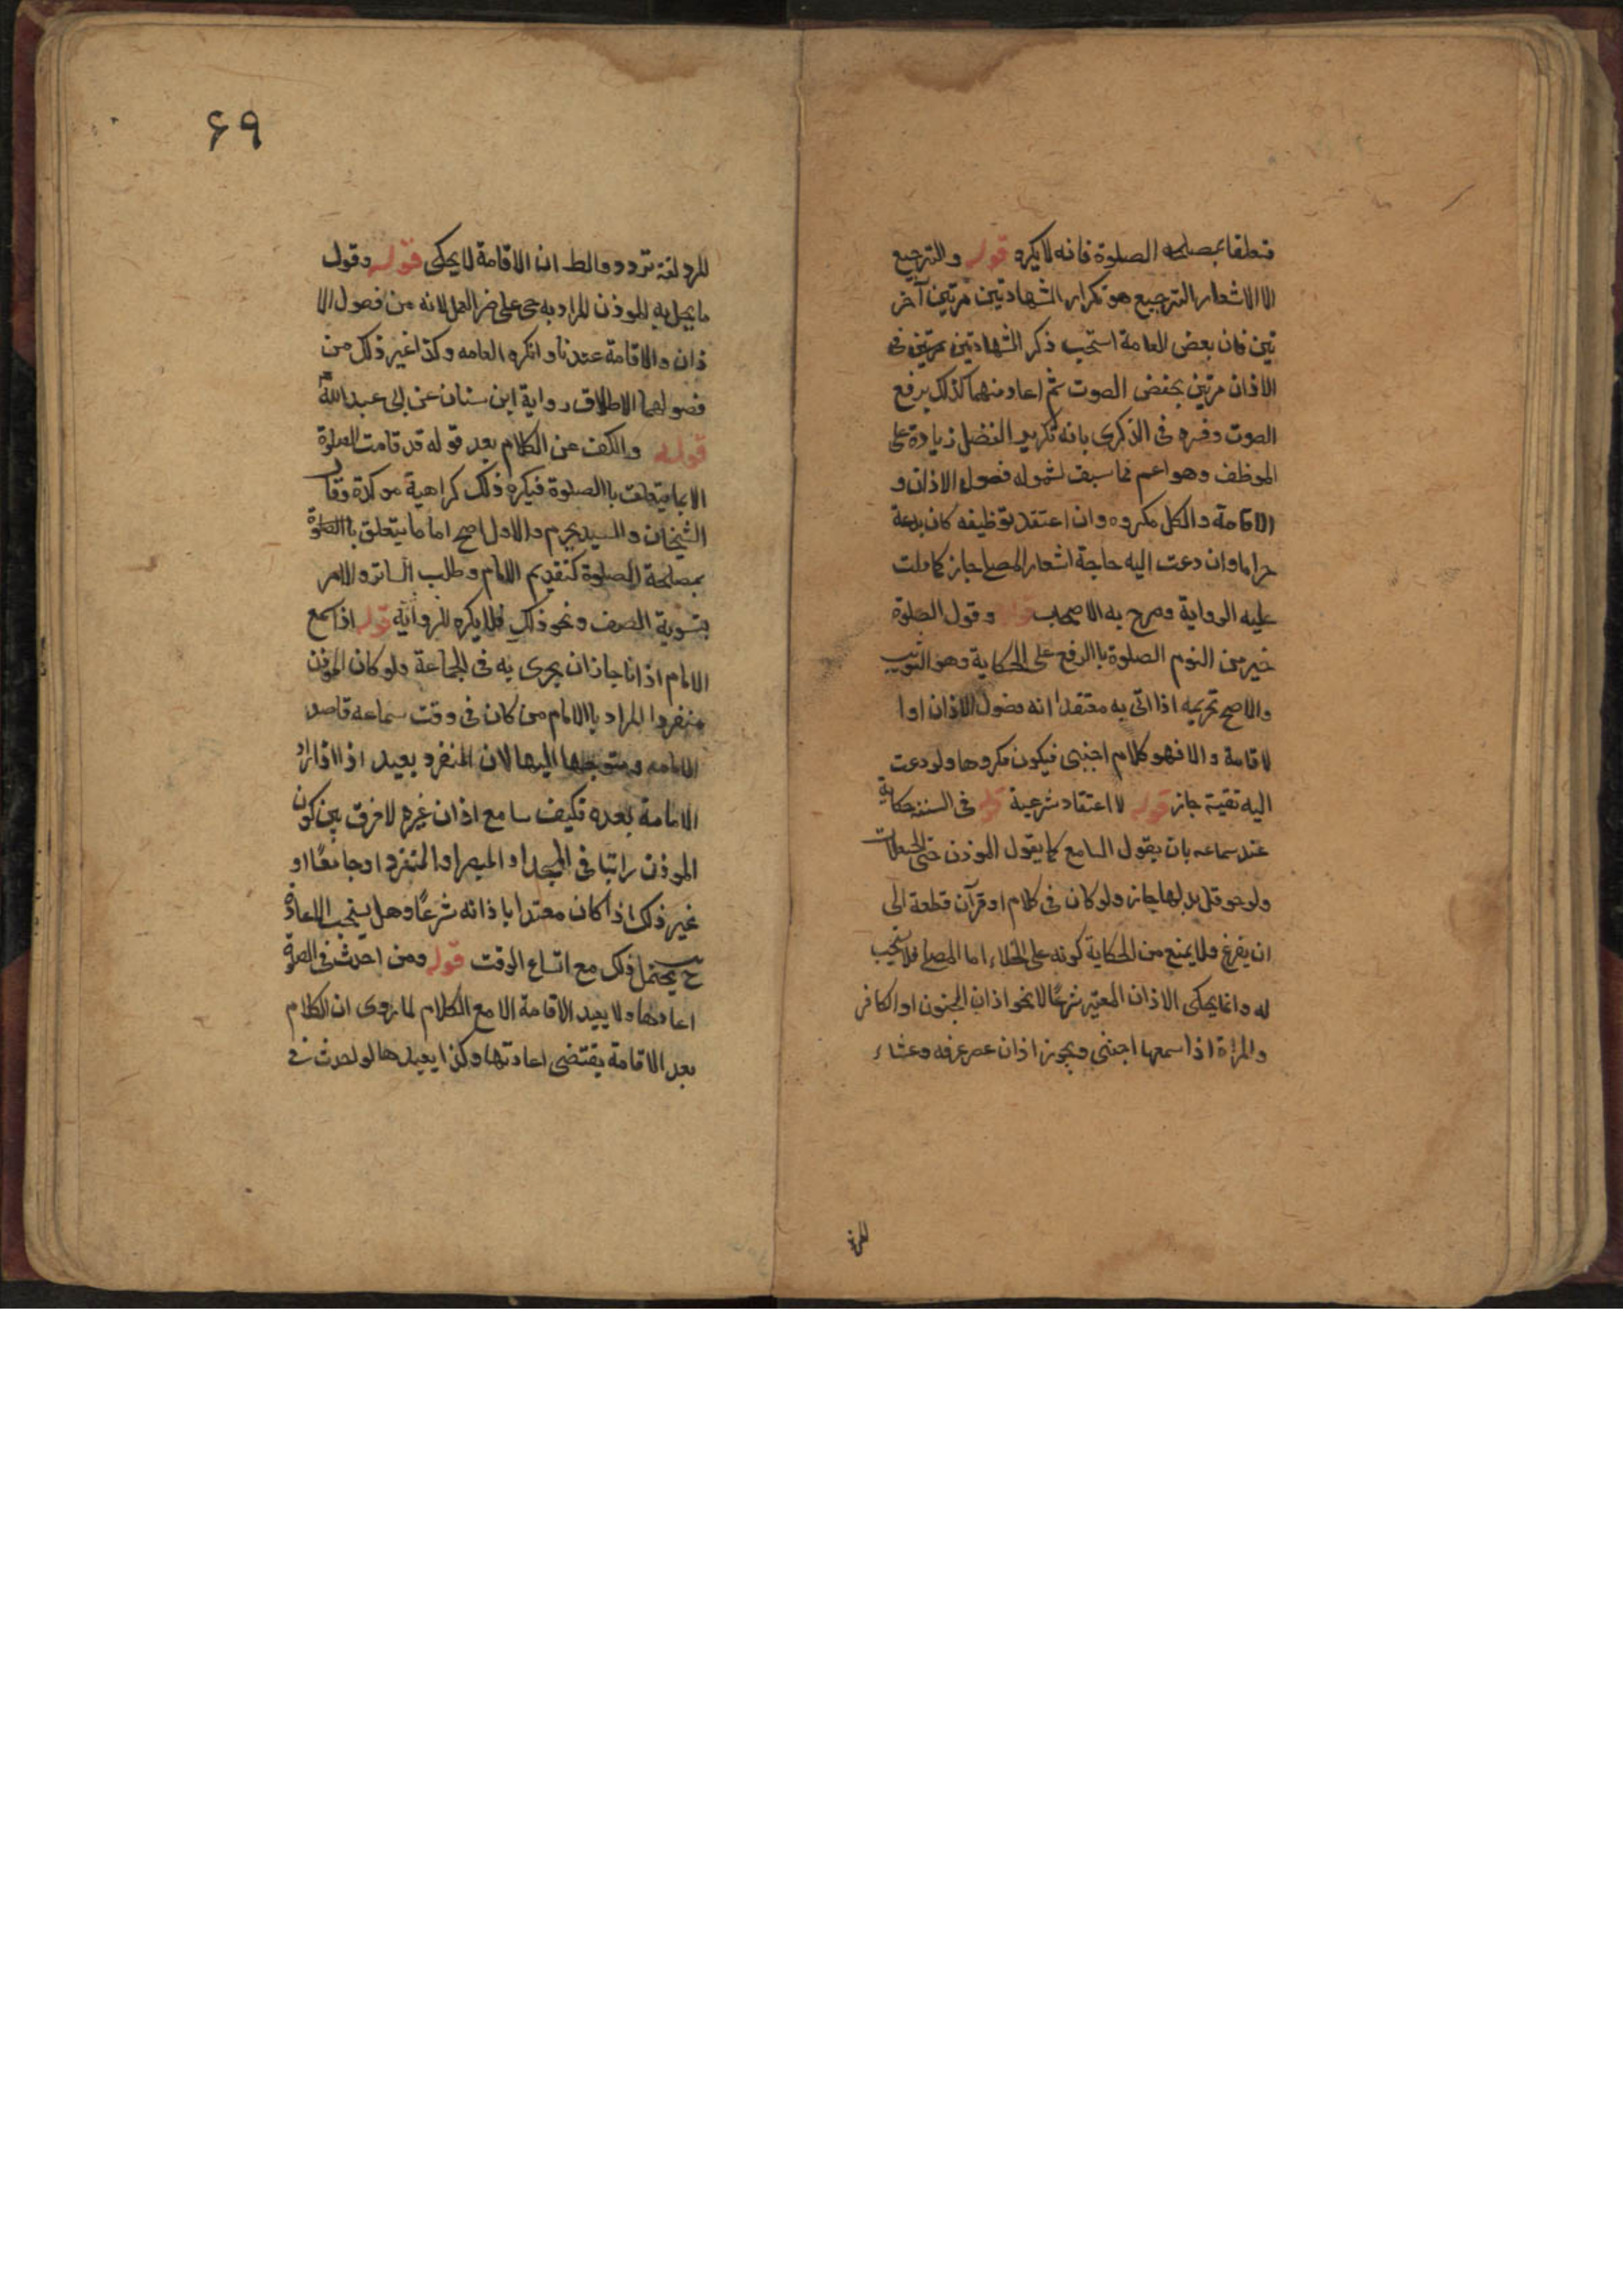 متعلقا بمصلحه الصلوة فانه لا يكره قوله والترجيع
الا الاشعار الترجيع هو تكرار الشهادتين مرتين آخر
تين فان بعض العامة استحب ذكر الشهادتين مرتين فى
الاذان مرتين بخفض الصوت ثم اعادمنهما كذلك برفع
الصوت وفسره فى الذكرى بانه تكرير الفصل زيادة على
الموظف وهو اعم مما سبق لشموله فصول الاذان و
الاقامة والكل مكروه وان اعتقد توظيفه كان بدعة
حراما وان دعت اليه حاجة اشعار المصلى جاز كما دلت
عليه الرواية وصرح به الاصحاب قوله وقول الصلوة
خير من النوم الصلوة باالرفع على الحكاية وهو التثويب
والاصح تحريمه اذا اتى به معتقدا انه فصول الاذان اوا
لاقامة والا فهو كلام اجنبى فيكون مكروها ولو دعت
اليه تقية جاز قوله لا اعتقاد شرعية قوله فى السنن حكاية
عند سماعه بان يقول السامع كما يقول الموذن حتى الحيعلات
ولو حوقل بدلها جاز ولو كان فى كلام او قرآن قطعة الى
ان يفرغ ولا يمنع من الحكاية كونه على الخلاء اما المصلى فلا تستحب
له وانما يحكى الاذان المعتبر شرعًا لا نحو اذان المجنون او الكافر
والمراة اذا سمعها اجنبى ويجوز اذان عصر عرفه وعشاء
المز
۶۹
المزدلفة تردد والظ ان الاقامة لا يحكى قوله وقول
ما يخل به الموذن المراد به حى على خير العمل لانه من فصول الا
ذان والاقامة عندنا وانكره العامه وكذا غير ذلك من
فصولهما الاطلاق رواية ابن سنان عن ابى عبد الله
قوله والكف عن الكلام بعد قوله قد قامت الصلوة
الا بما يتعلق باالصلوة فيكره ذلك كراهية موكدة وقال
الشيخان والسيد يحرم والاول اصح اما ما يتعلق باالصلوة
بمصلحة الصلوة كتقديم الامام وطلب الساتر والامر
بتسوية الصف ونحو ذلك فلا يكره للرواية قوله اذا سمع
الامام اذانا جاز ان يجزى به فى الجماعة ولو كان الموذن
منفردا المراد باالامام من كان فى وقت سماعه قاصد
الامامه ومتوجها اليها لان المنفرد يعيد اذا اراد
الامامة بعده فكيف سامع اذان غيره لا فرق بين كون
الموذن راتبا فى المسجد او المصر او المنفرد او جامعًا او
غير ذلك اذا كان معتدا باذانه شرعًا وهل يستحب الاعادة
ح يحتمل ذلك مع اتساع الوقت قوله ومن احدث فى الصلوة
اعادها ولا يعيد الاقامة الا مع الكلام لما روى ان الكلام
بعد الاقامة يقتضى اعادتها وكذا يعيدها لو احدث فى